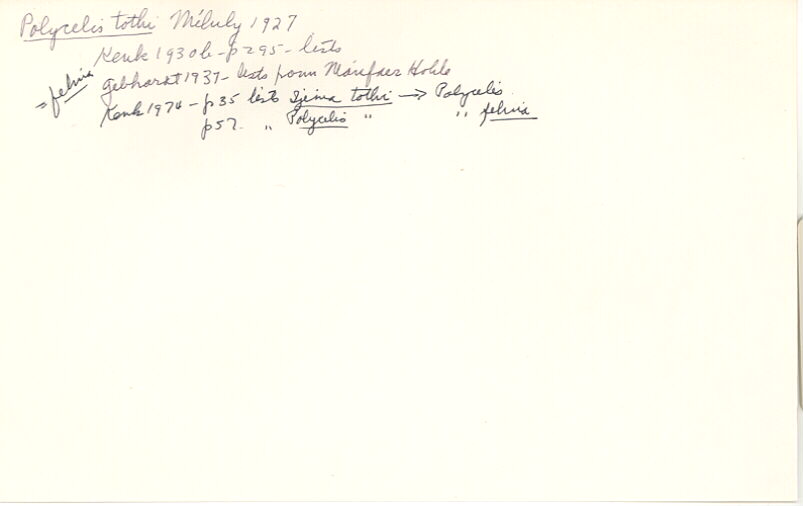 Polycelis tothi Méhely 1927
Kenk 1930b - p295 - lists
Gebhardt 1937 - lists from Mánfaer Hohle
= felina
Kenk 1974 - p35 lists Sjeina tothi → Polycelis
p57. " Polycelis " " felina